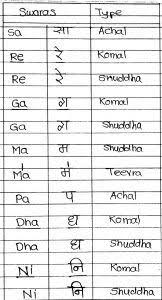 Swaras Type
Sa सा Achal
Re रे Komal
Re रे Shuddha
Ga ग Komal
Ga ग Shuddha
Ma म Shuddha
Ma म॑ Teevra
Pa प Achal
Dha ध Komal
Dha ध Shuddha
Ni नि Komal
Ni नि Shuddha